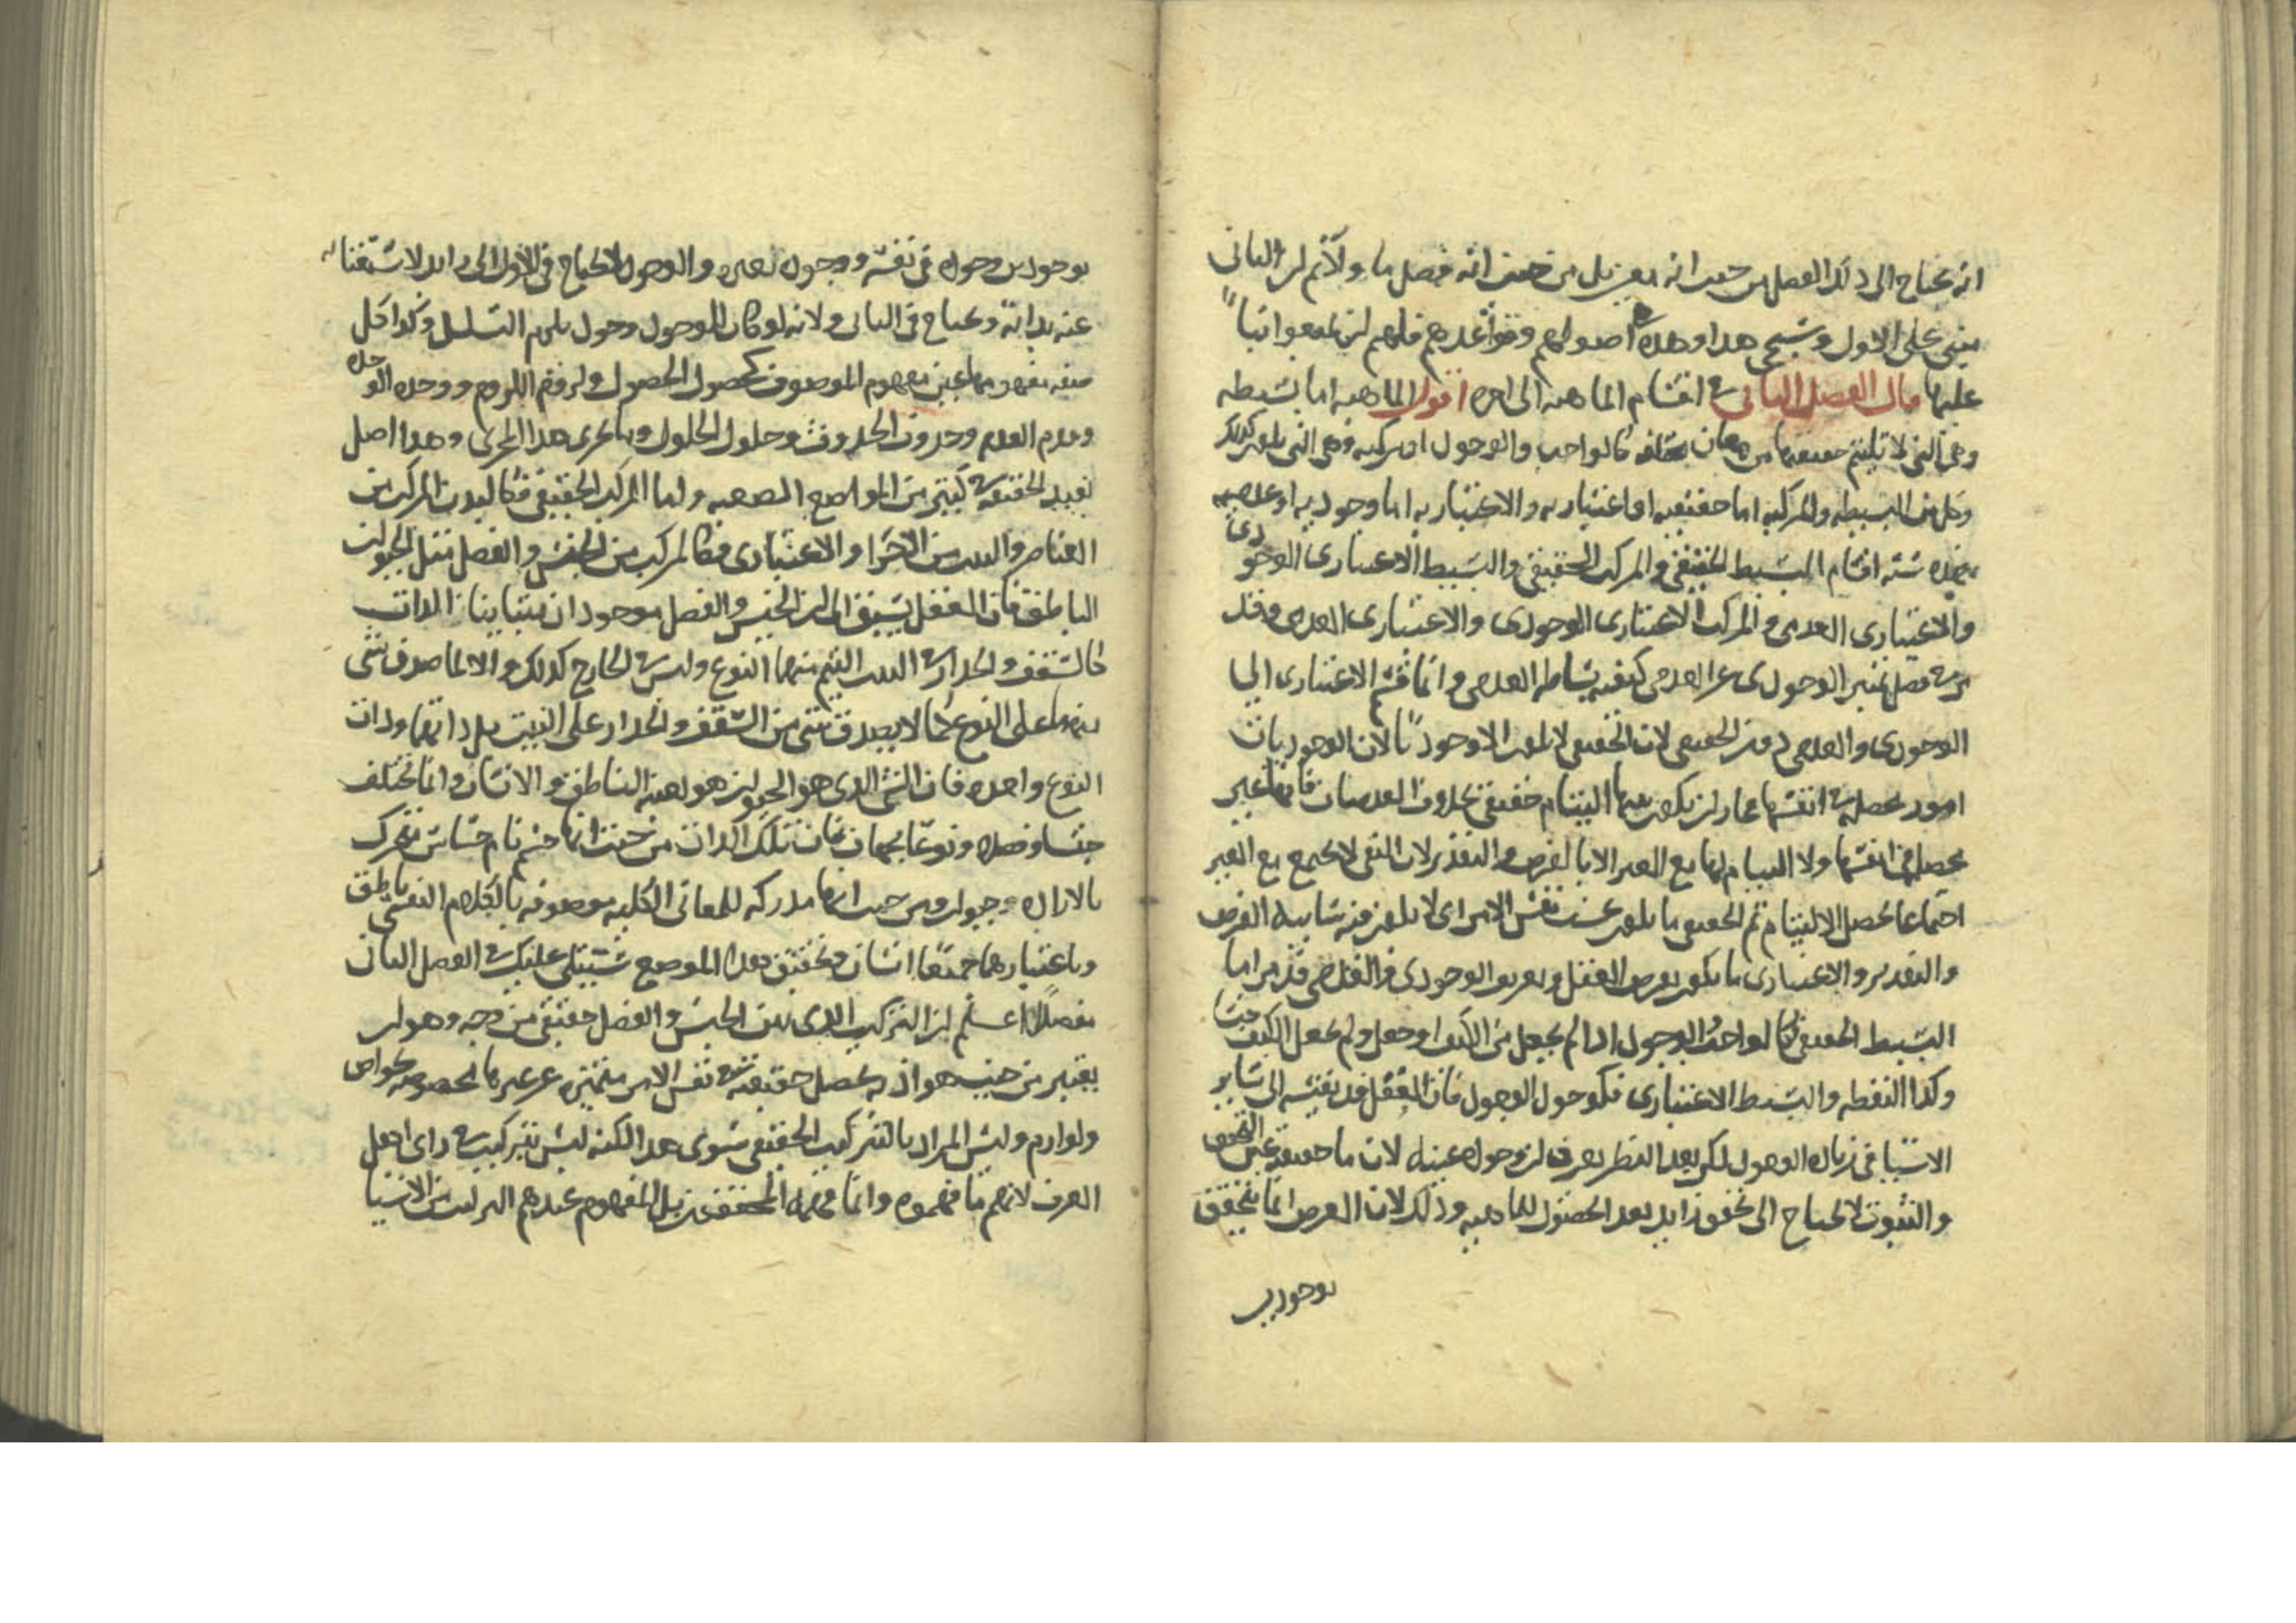 انه يحتاج الى ذلك الفصل من حيث انه معين بل من حيث انه فصل ما ولأنم لن الثاني
مبني على الاول وسيجي هذا وهذه اصولهم وقواعدهم فلهم لن يمنعوا
عليها قال الفصل الثاني في اقسام الماهيه الى اخره اقول الماهيه اما بسيطه
وهي التي لا تلتئم حقيقتها من معان مختلفه كالواحب والوجود او مركبه وهي التي يلون كذلك
وكل من البسيطه والمركبه اما حقيقيه او اعتباريه والاعتباريه اما وجوديه او عدميه
فهذه سته اقسام البسيط الحقيقي والمركب الحقيقي والبسيط الاعتباري الوجودي
والاعتباري العدمي والمركب الاعتباري الوجودي والاعتباري العدمي وقد
مر في فصل تميز الوجودي عن العدمي كيفيه بساطه العدمي وانما قسم الاعتباري الى
الوجودي والعدمي دون الحقيقي لان الحقيقي لا يكون الا وجوديا لان الوجوديات
امور محصله في انفسها فجاز لن يكون بينها التيام حقيقي بخلاف العدميات فانها غير
محصله في انفسها ولا التيام لها مع الغير الا بالفرض والتقدير لان النفي لا يجمع مع الغير
اجتماعا يحصل الالتيام ثم الحقيقي ما يكون بحسب نفس الامر اي لا يكون فيه شايبه الفرض
والتقدير والاعتباري ما يكون بفرض العقل وتعريف الوجودي والعدمي قد مر اما
البسيط الحقيقي فكالواحب الوجود اذا لم يجعل من الكيف او جعل ولم يجعل الكيف جنسا
وكذا النقطه والبسيط الاعتباري فكوجود الوجود فان العقل قد يقيسه الى ساير
الاشيا في زياده الوجود لكن بعد النظر يعرف لن وجوده عينه لان ما حقيقته عين التحقق
والثبوت لا يحتاج الى تحقق زايد بعد الحصول للماهيه وذلك لان العرض انما يتحقق
بوجودين
بوجودين وجوده في نفسه ووجوده لغيره والوجود لا يحتاج في الاول الى زايد لاستغنائه
عنه بذاته ويحتاج في الثاني ولانه لو كان للوجود وجود يلزم التسلسل وكذا كل
صفه مفهومها عين مفهوم الموصوف كحصول الحصول ولزوم اللزوم ووحده الوحده
وعدم العدم وحدوث الحدوث وحلول الحلول وما يجري هذا المجرى وهذا اصل
يفيد الحقيقه في كثير من المواضع الصعبه واما المركب الحقيقي فكالبدن المركب من
العناصر والبيت من الاجزا والاعتباري فكالمركب من الجنس والفصل مثل الحيوان
الناطق فان العقل يسبق الى لن الجنس والفصل موجودان متباينان بالذات
كالسقف والجدار في البيت التيم منهما النوع وليس في الخارج كذلك والا لما صدق شي
منهما على النوع كما لا يصدق شي من السقف والجدار على البيت بل ذاتهما وذات
النوع واحده فان الشي الذي هو الحيوان هو بعينه الناطق والانسان وانما تختلف
جنسا وفصلا ونوعا بجهات فان تلك الذات من حيث انها جسم نام حساس متحرك
بالاراده حيوان ومن حيث انها مدركه للمعاني الكليه موصوفه بالكلام النفسي ناطق
وباعتبارهما جميعا انسان وتحقيق هذا الموضع سيتلى عليك في الفصل الثاني
مفصلا اعلم لن التركيب الذي بين الجنس والفصل حقيقي من وجه وهو لن
يعتبر من حيث هو اذ به يحصل حقيقه في نفس الامر متميزه عن غيرها مخصوصه بخواص
ولوازم وليس المراد بالتركيب الحقيقي سوى هذا لكنه ليس بتركيب في راي اهل
العرف لانهم ما فهموه وانما فهمه المحققون بل المفهوم عندهم التركيب من الاشيا